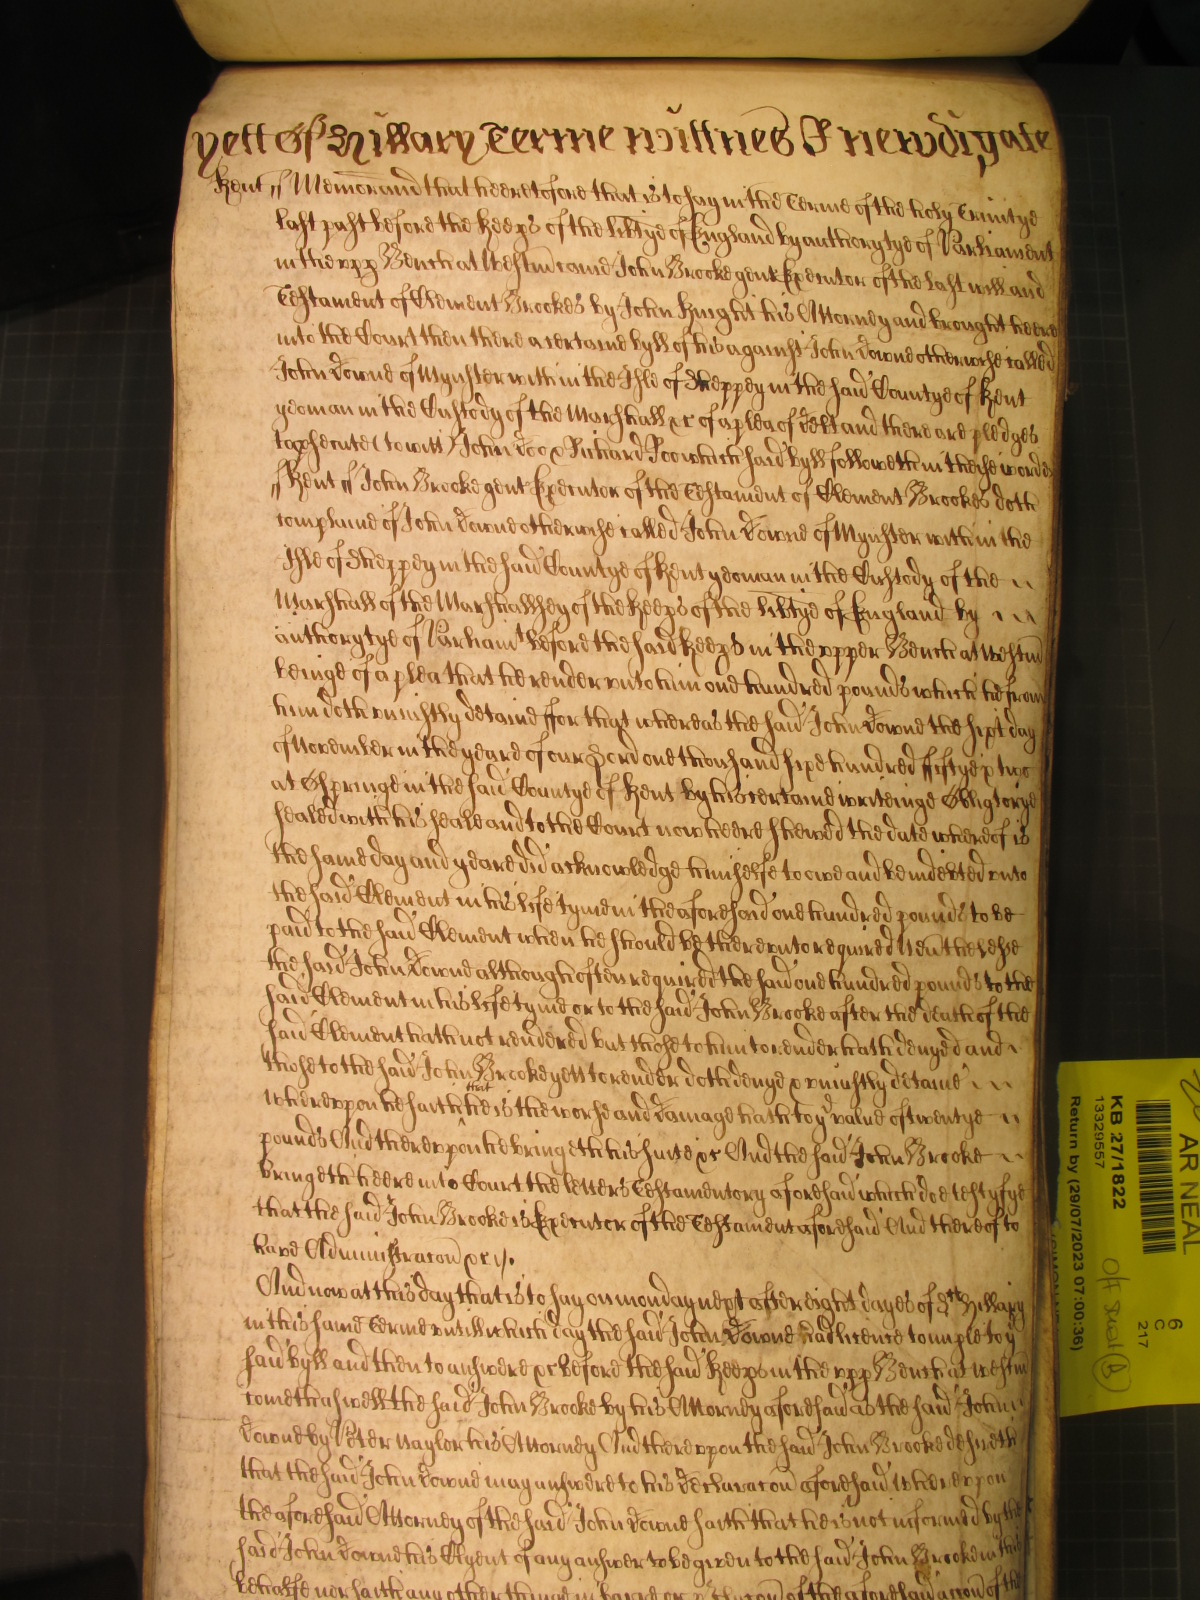 yett Of Hillary Terme wittnes R Newdigate
Kent ss Memorand that heeretofore that is to say in the Terme of the holy Trinitye
last past before the Keeps of the libtye of England by authorytye of Parliament
in the vpp Bench at Westm came John Brooke gent Executor of the last will and
Testament of Clement Brookes by John Knight his Attorney and brought heere
into the Court then there a certaine byll of his against John Downe otherwise called
John Downe of Mynster within the Isle of Sheppey in the said Countye of Kent
yeoman in the Custody of the Marshall &c of a plea of debt and there are pledges
to psecute (to witt) John Doo & Richard Roo which said byll followeth in theise wordes
ss Kent ss John Brooke gent Executor of the Testament of Clement Brookes doth
complaine of John Downe otherwise called John Downe of Mynster within the
Isle of Sheppey in the said Countye of Kent yeoman in the Custody of the
Marshall of the Marshallsey of the Keeps of the libtye of England by
authorytye of Parliamt before the said Keeps in the vpper Bench at Westm
beinge of a plea that he render vnto him one hundred pounds which he from
him doth vniustly detaine ffor that whereas the said John Downe the sixt day
of November in the yeare of our Lord one thousand sixe hundred fiftye & two
at Ospringe in the said Countye of Kent by his certaine writeinge Obligtorye
sealed with his seale and to the Court now heere shewed the date whereof is
the same day and yeare did acknowledge himselfe to owe and be indebted vnto
the said Clement in his life tyme in the aforesaid one hundred pounds to be
paid to the said Clement when he should be therevnto required Nevtheles
the said John Downe although often required the said one hundred pounds to the
said Clement in his life tyme or to the said John Brooke after the death of the
said Clement hath not rendered but those to him to render hath denyed and
those to the said John Brooke yett to render doth denye & vniustly detaine
Wherevppon he saith that he is the worse and damage hath to ye value of twentye
pounds And therevppon he bringeth his suite &c And the said John Brooke
bringeth heere into Court the letters Testamentory aforesaid which doe testyfye
that the said John Brooke is Executor of the Testament aforesaid And thereof to
have Administracon &c
And now at this day that is to say on monday next after eight dayes of St Hillary
in this same Terme vntill which day the said John Downe had licence to imple to ye
said byll and then to answere &c before the said Keeps in the vpp Bench at Westm
cometh aswell the said John Brooke by his Attorney aforesaid as the said John
Downe by Peter Naylor his Attorney And therevppon the said John Brooke desireth
that the said John Downe may answere to his declaracon aforesaid Wherevppon
the aforesaid Attorney of the said John Downe saith that he is not informed by the
said John Downe his Clyent of any answer to be given to the said John Brooke in the
behalfe nor saith any other thinge in barre or of the aforesaid accon of the
AR NEAL
KB 27/1822
13329557
Return by (29/07/2023 07:00:36)
6
C
217